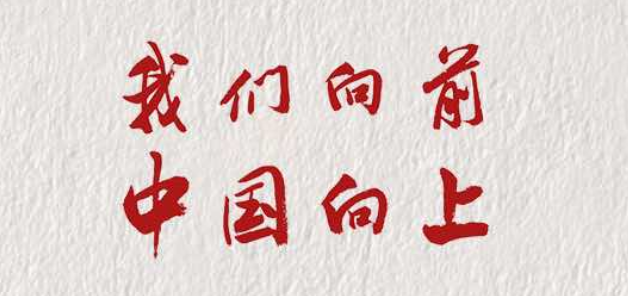 我们向前
中国向上